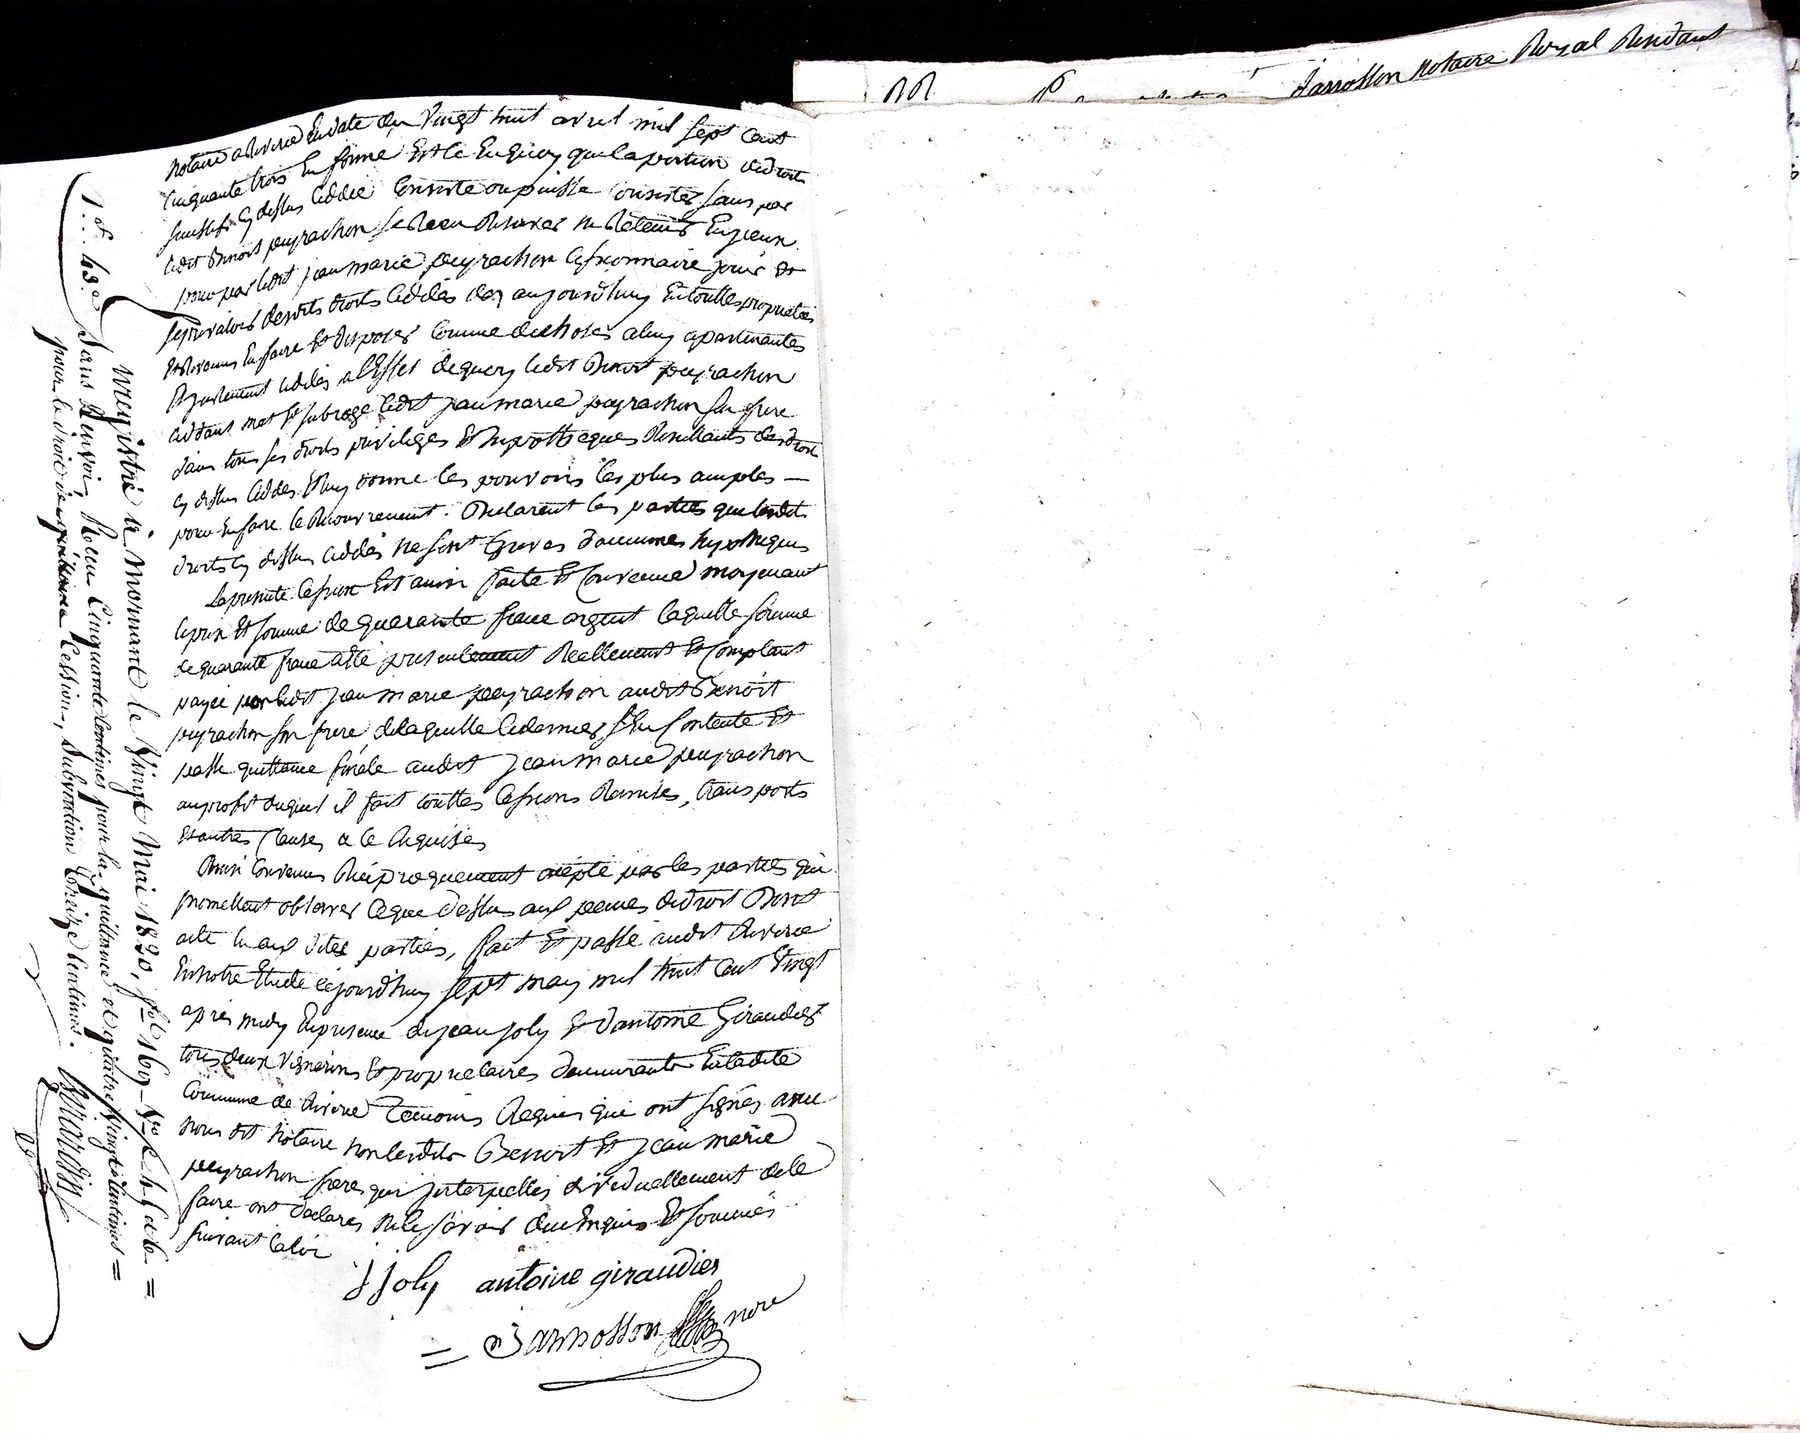 notaire a Riverie En date du Vingt huit avril mil sept Cent
Cinquante trois En forme Est Ce En quoy que la portion de droits
successifs Cy dessus Cédée Consiste ou puisse Consister sans par
ledit Benoit peyrachon se Rien Reserver ni Retenir
pour par ledit jean marie peyrachon Cessionnaire jouir Et
desdits droits Cédés dez aujourd'huy En touttes proprietés
Et Revenus En faire Et disposer Comme de choses a luy apartenantes
Et justement Cédées a l'Effet de quoy ledit Benoit peyrachon
Cédant met Et subroge ledit jean marie peyrachon son frere
dans tous ses droits privileges Et hypotheques Resultants des droits
Cy dessus Cédés Et luy donne les pouvoirs les plus amples —
pour En faire le Recouvrement. Declarent les parties que lesdits
droits Cy dessus Cédés ne sont Grevés d'aucunes hypotheques
La presente Cession Est ainsi faite Et Convenue moyenant
le prix Et somme de quarante franc argent laquelle somme
de quarante franc a Eté presentement Reellement Et Comptant
payée par ledit jean marie peyrachon audit Benoit
peyrachon son frere, de laquelle Ce dernier s'En Contente Et
passe quittance finale audit jean marie peyrachon
au profit duquel il fait touttes Cessions Remises, transports
Et autres Clauses a Ce Requises
Ainsi Convenus Reciproquement accepté par les parties qui
promettent observer Ce que dessus aux peines de droit Dont
acte lu aux dites parties, fait Et passé audit Riverie
En notre Etude Cejourd'huy sept may mil huit Cent Vingt
après midy En presence de jean joly Et d'antoine Giraudier
tous deux Vignerons Et proprietaires demeurants En ladite
Commune de Riverie Temoins Requis qui ont signés avec
nous dit notaire non lesdits Benoit Et jean marie
peyrachon freres qui interpellés individuellement de le
faire ont declarés ne le sçavoir de ce Enquis Et sommés
suivant la loi
j joly antoine giraudier
= Jarrosson nore
Enregistré à Mornant le Vingt Mai 1820, fo 169 Vo C. 4, 5 et 6 =
Sans Renvoi, Reçu Cinquante Centimes pour la quittance et quatre Vingt Centimes =
pour le droit de Cession, Subvention treize Centimes.
1.f 43c
Jarrosson notaire Royal Residant